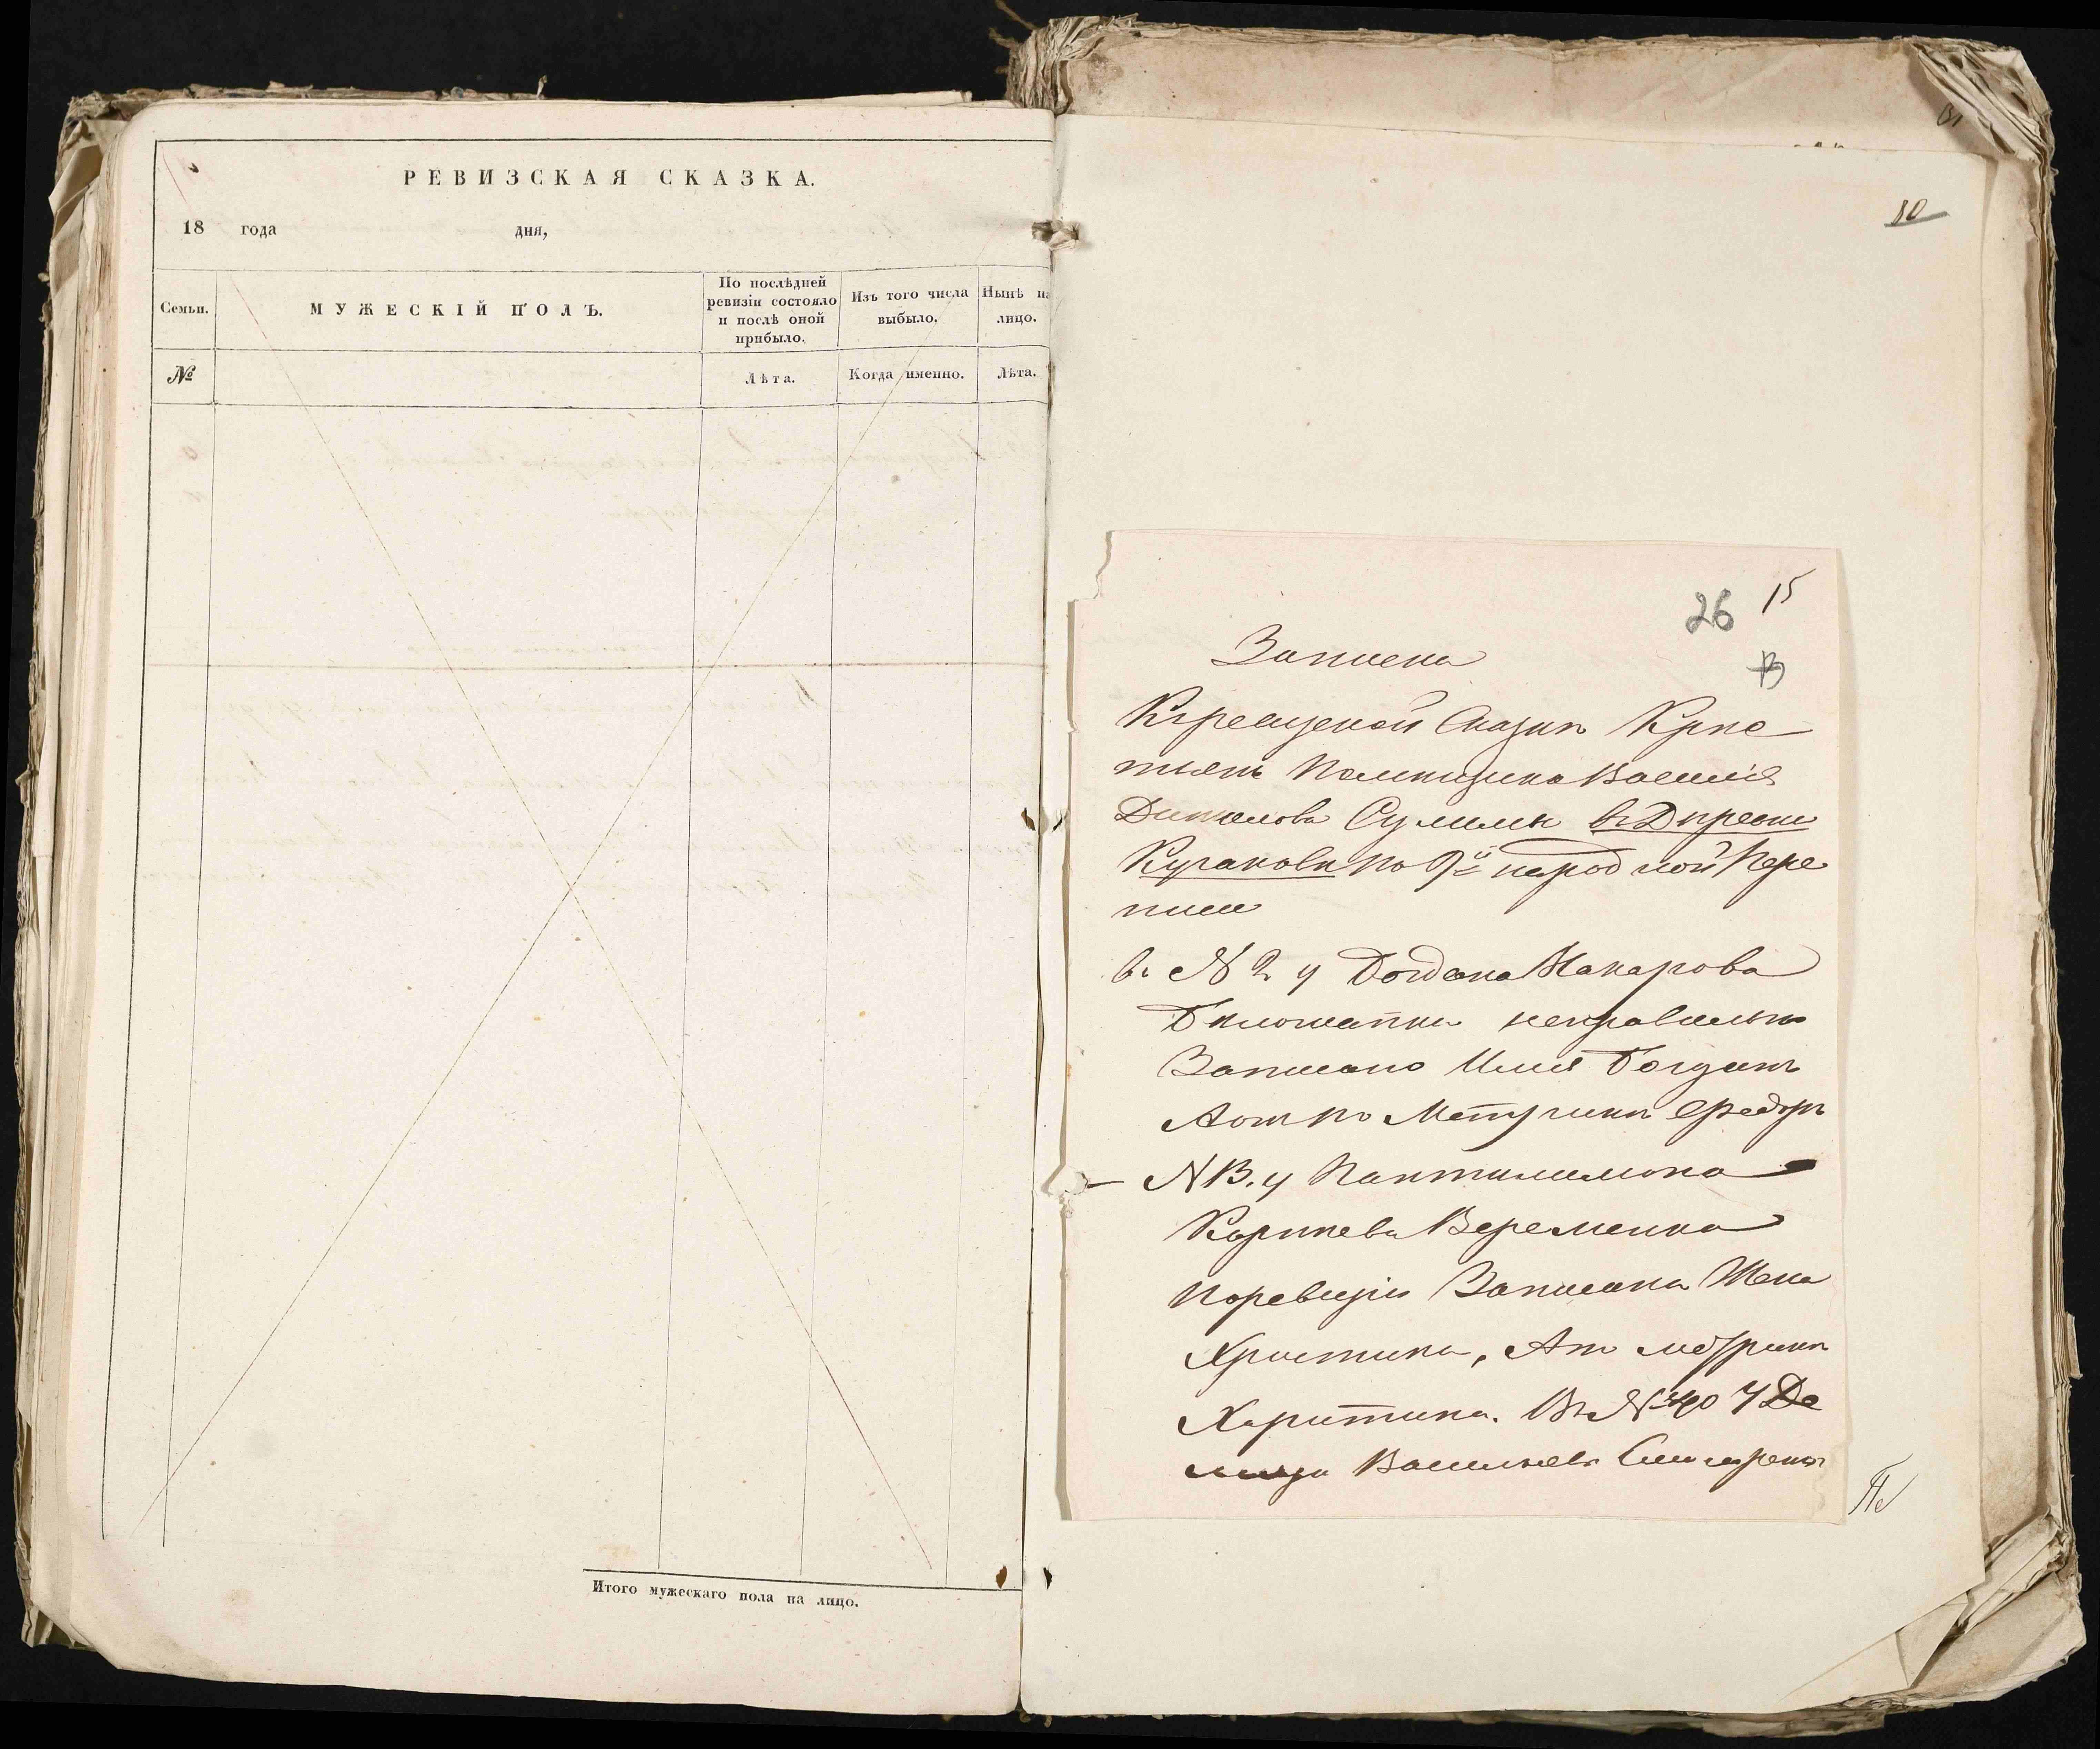 РЕВИЗСКАЯ СКАЗКА.
18 года дня,
Семьи.
МУЖЕСКІЙ ПОЛЪ.
По послѣдней
ревизіи состояло
и послѣ оной
прибыло.
Изъ того числа
выбыло.
Нынѣ на
лицо.
№
Лѣта.
Когда именно.
Лѣта.
Итого мужескаго пола на лицо.
80
26 15
Записка
Кгревизской Сказкѣ Крѣс
тьянъ Помѣщика Василія
Сулимы въ Дѣревни
по 9й народной Пере
писи
в. № 2 у Богдана Макарова
неправильно
Записано Имя Богданъ
Аот по Метрики Федоръ
№ 13. у Пантилимона
Корнѣева Веременка
поревизіи Записана Жена
Христина, Ат метрики
Харитина. Въ № 40 У Де
мида Васильева